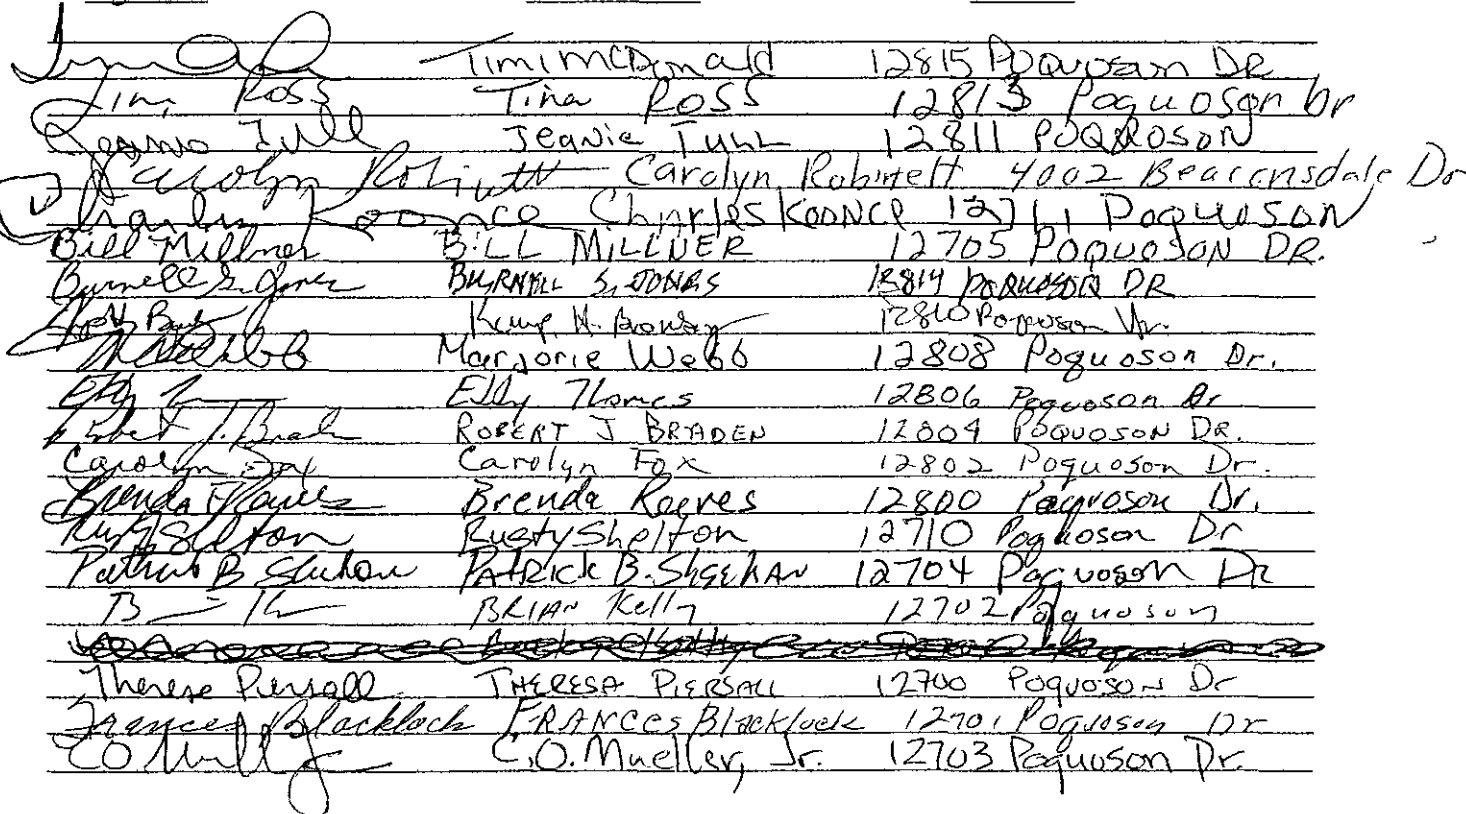 Timi McDonald 12815 Poquoson DR
Tina Ross Tina ROSS 12813 Poquoson Dr
Jeanie Tull Jeanie Tull 12811 POQUOSON
Carolyn Robinett Carolyn Robinett 4002 Beaconsdale Dr
Charles Koonce Charles Koonce 12711 Poquoson
Bill Millner BILL MILLNER 12705 POQUOSON DR.
Burnell S. Jones BURNELL S. JONES 12814 POQUOSON DR
12810 Poquoson Dr.
M Webb Marjorie Webb 12808 Poquoson Dr.
Elly Thomas 12806 Poquoson Dr
Robert J. Braden ROBERT J BRADEN 12804 POQUOSON DR.
Carolyn Fox Carolyn Fox 12802 Poquoson Dr.
Brenda Reeves Brenda Reeves 12800 Poquoson Dr.
Rusty Shelton Rusty Shelton 12710 Poquoson Dr
Patrick B Sheehan PATRICK B. SHEEHAN 12704 Poquoson Dr
BRIAN Kelly 12702 Poquoson
Theresa Piersall THERESA PIERSALL 12700 Poquoson Dr
Frances Blacklock FRANCES Blacklock 12701 Poquoson Dr
CO Mueller C.O. Mueller, Jr. 12703 Poquoson Dr.